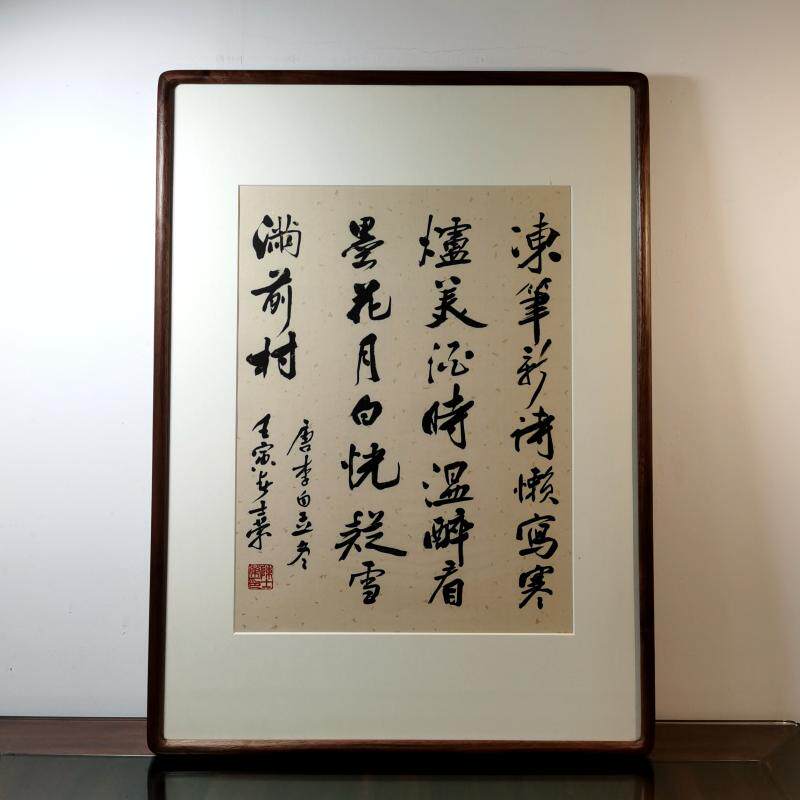 凍筆新詩懶寫寒
爐美酒時溫醉看
墨花月白恍疑雪
滿前村
唐李白立冬
壬寅 士榮